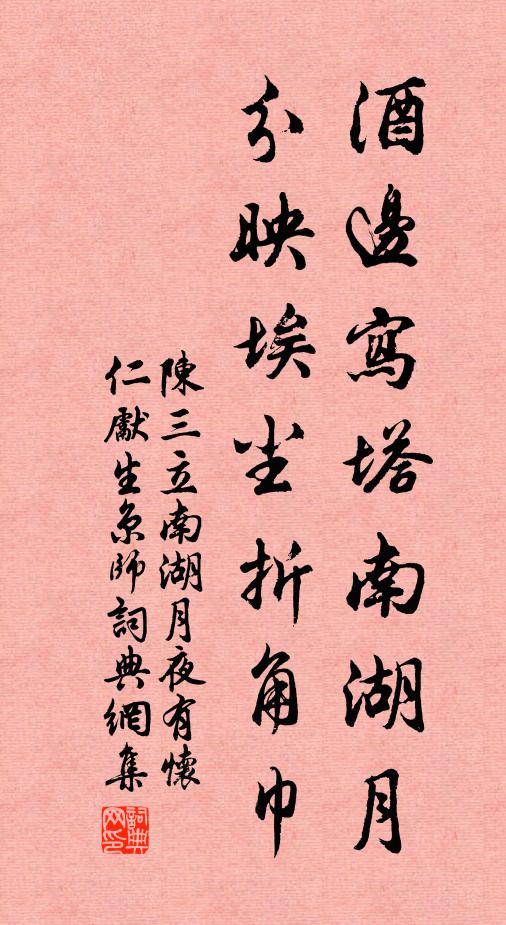 酒邊寫塔南湖月
分映埃尘折角巾
陳三立南湖月夜有懷
仁獻生京師詞典網集
詞典网印